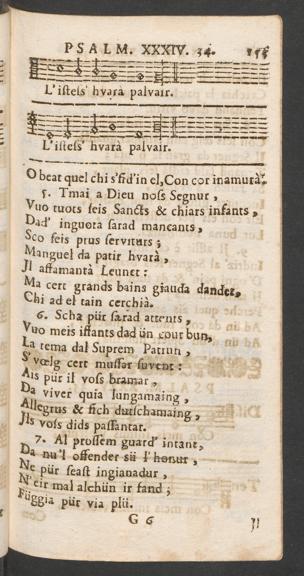 PSALM. XXXIV. 34. 155
L'istess' hvarà palvair.
L'istess' hvarà palvair.
O beat quel chi s'fid'in el, Con cor inamurà.
5. Tmai a Dieu noss Segnur,
Vuo tuots seis Sancts & chiars infants,
Dad' inguotà sarad mancants,
Sco seis prus serviturs;
Manguel da patir hvarà,
Jl affamantà Leunet:
Ma cert grands bains giauda dandet,
Chi ad el tain cerchià.
6. Scha pür sarad attents,
Vuo meis iffants dad ün cout bun,
La tema dal Suprem Patrun,
S'vœlg cert mussar suvent:
Ais pür il voss bramar,
Da viver quia lungamaing,
Allegrus & sich dutschamaing,
Jls voss dids passantar.
7. Al prossem guard' intant,
Da nu'l offender sü l'honur,
Ne pür seast ingianadur,
N'eir mal alchün ir fand;
Függia pür via plü.
G 6 Jl